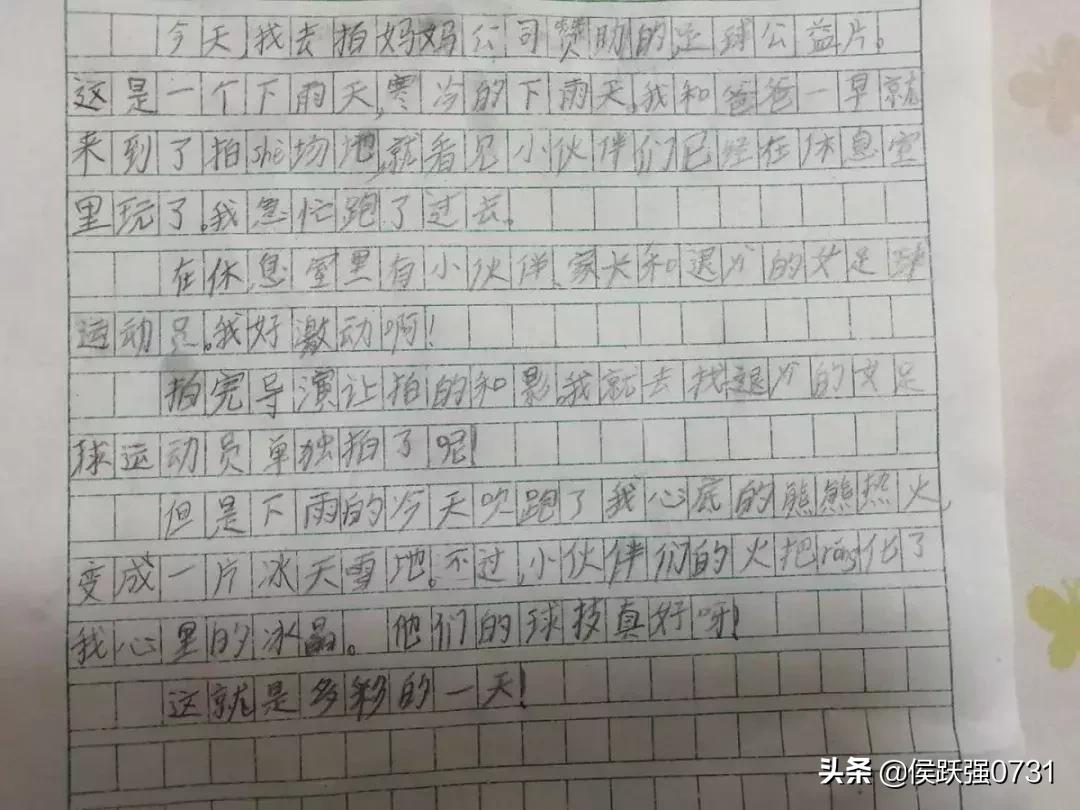 今天我去拍妈妈公司赞助的足球公益片。
这是一个下雨天,寒冷的下雨天。我和爸爸一早就
来到了拍shè场地,就看见小伙伴们已经在休息室
里玩了。我急忙跑了过去。
在休息室里有小伙伴、家长和退少的女足球
运动员。我好激动啊!
拍完导演让拍的和影,我就去找退少的女足
球运动员单独拍了呢!
但是下雨的今天吹跑了我心底的熊熊热火,
变成一片冰天雪地。不过,小伙伴们的火把róng化了
我心里的冰晶。他们的球技真好呀!
这就是多彩的一天!
头条 @侯跃强0731